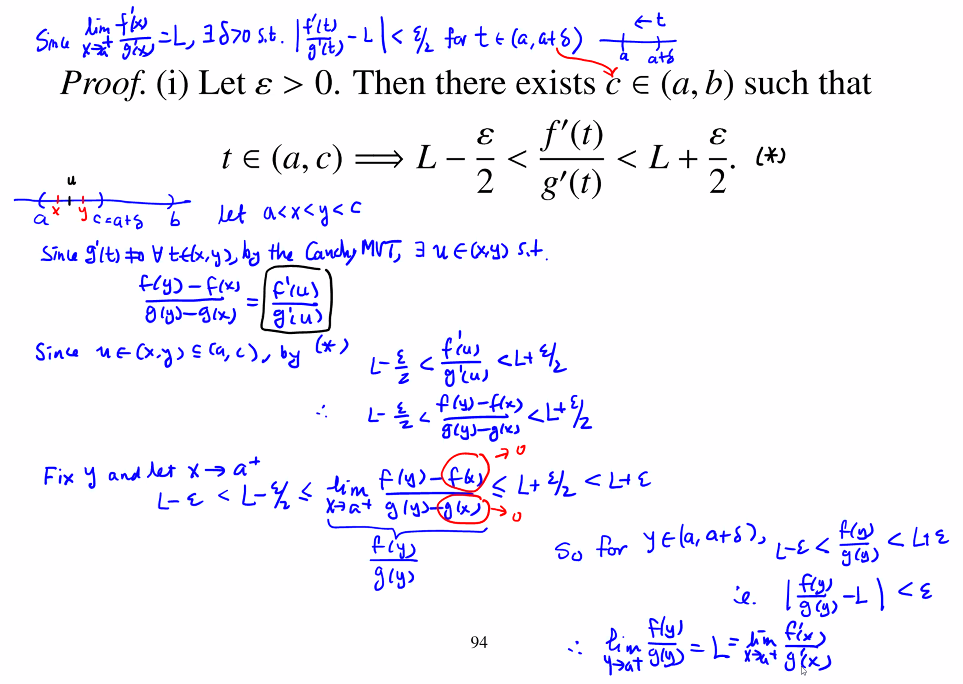 Since lim x→a⁺ f'(x)/g'(x) = L, ∃ δ>0 s.t. |f'(t)/g'(t) - L| < ε/2 for t ∈ (a, a+δ)
← t
a a+δ
Proof. (i) Let ε > 0. Then there exists c ∈ (a, b) such that
t ∈ (a, c) ⟹ L − ε/2 < f′(t)/g′(t) < L + ε/2. (*)
u
a x y c=a+δ b
Let a<x<y<c
Since g'(t)≠0 ∀ t∈(x,y), by the Cauchy MVT, ∃ u ∈ (x,y) s.t.
f(y)-f(x)/g(y)-g(x) = f'(u)/g'(u)
Since u ∈ (x,y) ⊆ (a,c), by (*)
L-ε/2 < f'(u)/g'(u) < L+ε/2
∴ L-ε/2 < f(y)-f(x)/g(y)-g(x) < L+ε/2
Fix y and let x → a⁺
L-ε < L-ε/2 ≤ lim x→a⁺ f(y)-f(x)/g(y)-g(x) ≤ L+ε/2 < L+ε
→0
→0
f(y)/g(y)
So for y∈(a, a+δ), L-ε < f(y)/g(y) < L+ε
i.e. |f(y)/g(y) - L| < ε
∴ lim y→a⁺ f(y)/g(y) = L = lim x→a⁺ f'(x)/g'(x)
94